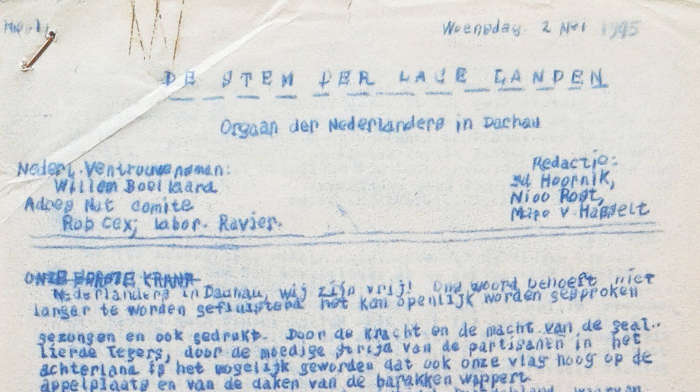 No. 1
Woensdag 2 Mei 1945
DE STEM DER LAGE LANDEN
Orgaan der Nederlanders in Dachau
Nederl. Vertrouwensman:
Willem Boellaard
Adres Nat comite
Rob Cox; labor. Revier.
Redactie:
Ed Hoornik,
Nico Rost,
Maro v. Hasselt
ONZE EERSTE KRANT
Nederlanders in Dachau, wij zijn vrij! Ons woord behoeft niet
langer te worden gefluisterd het kan openlijk worden gesproken
gezongen en ook gedrukt. Door de kracht en de macht van de geal-
lieerde legers, door de moedige strijd van de partisanen in het
achterland is het mogelijk geworden dat ook onze vlag hoog op de
appelplaats en van de daken van de barakken wappert.